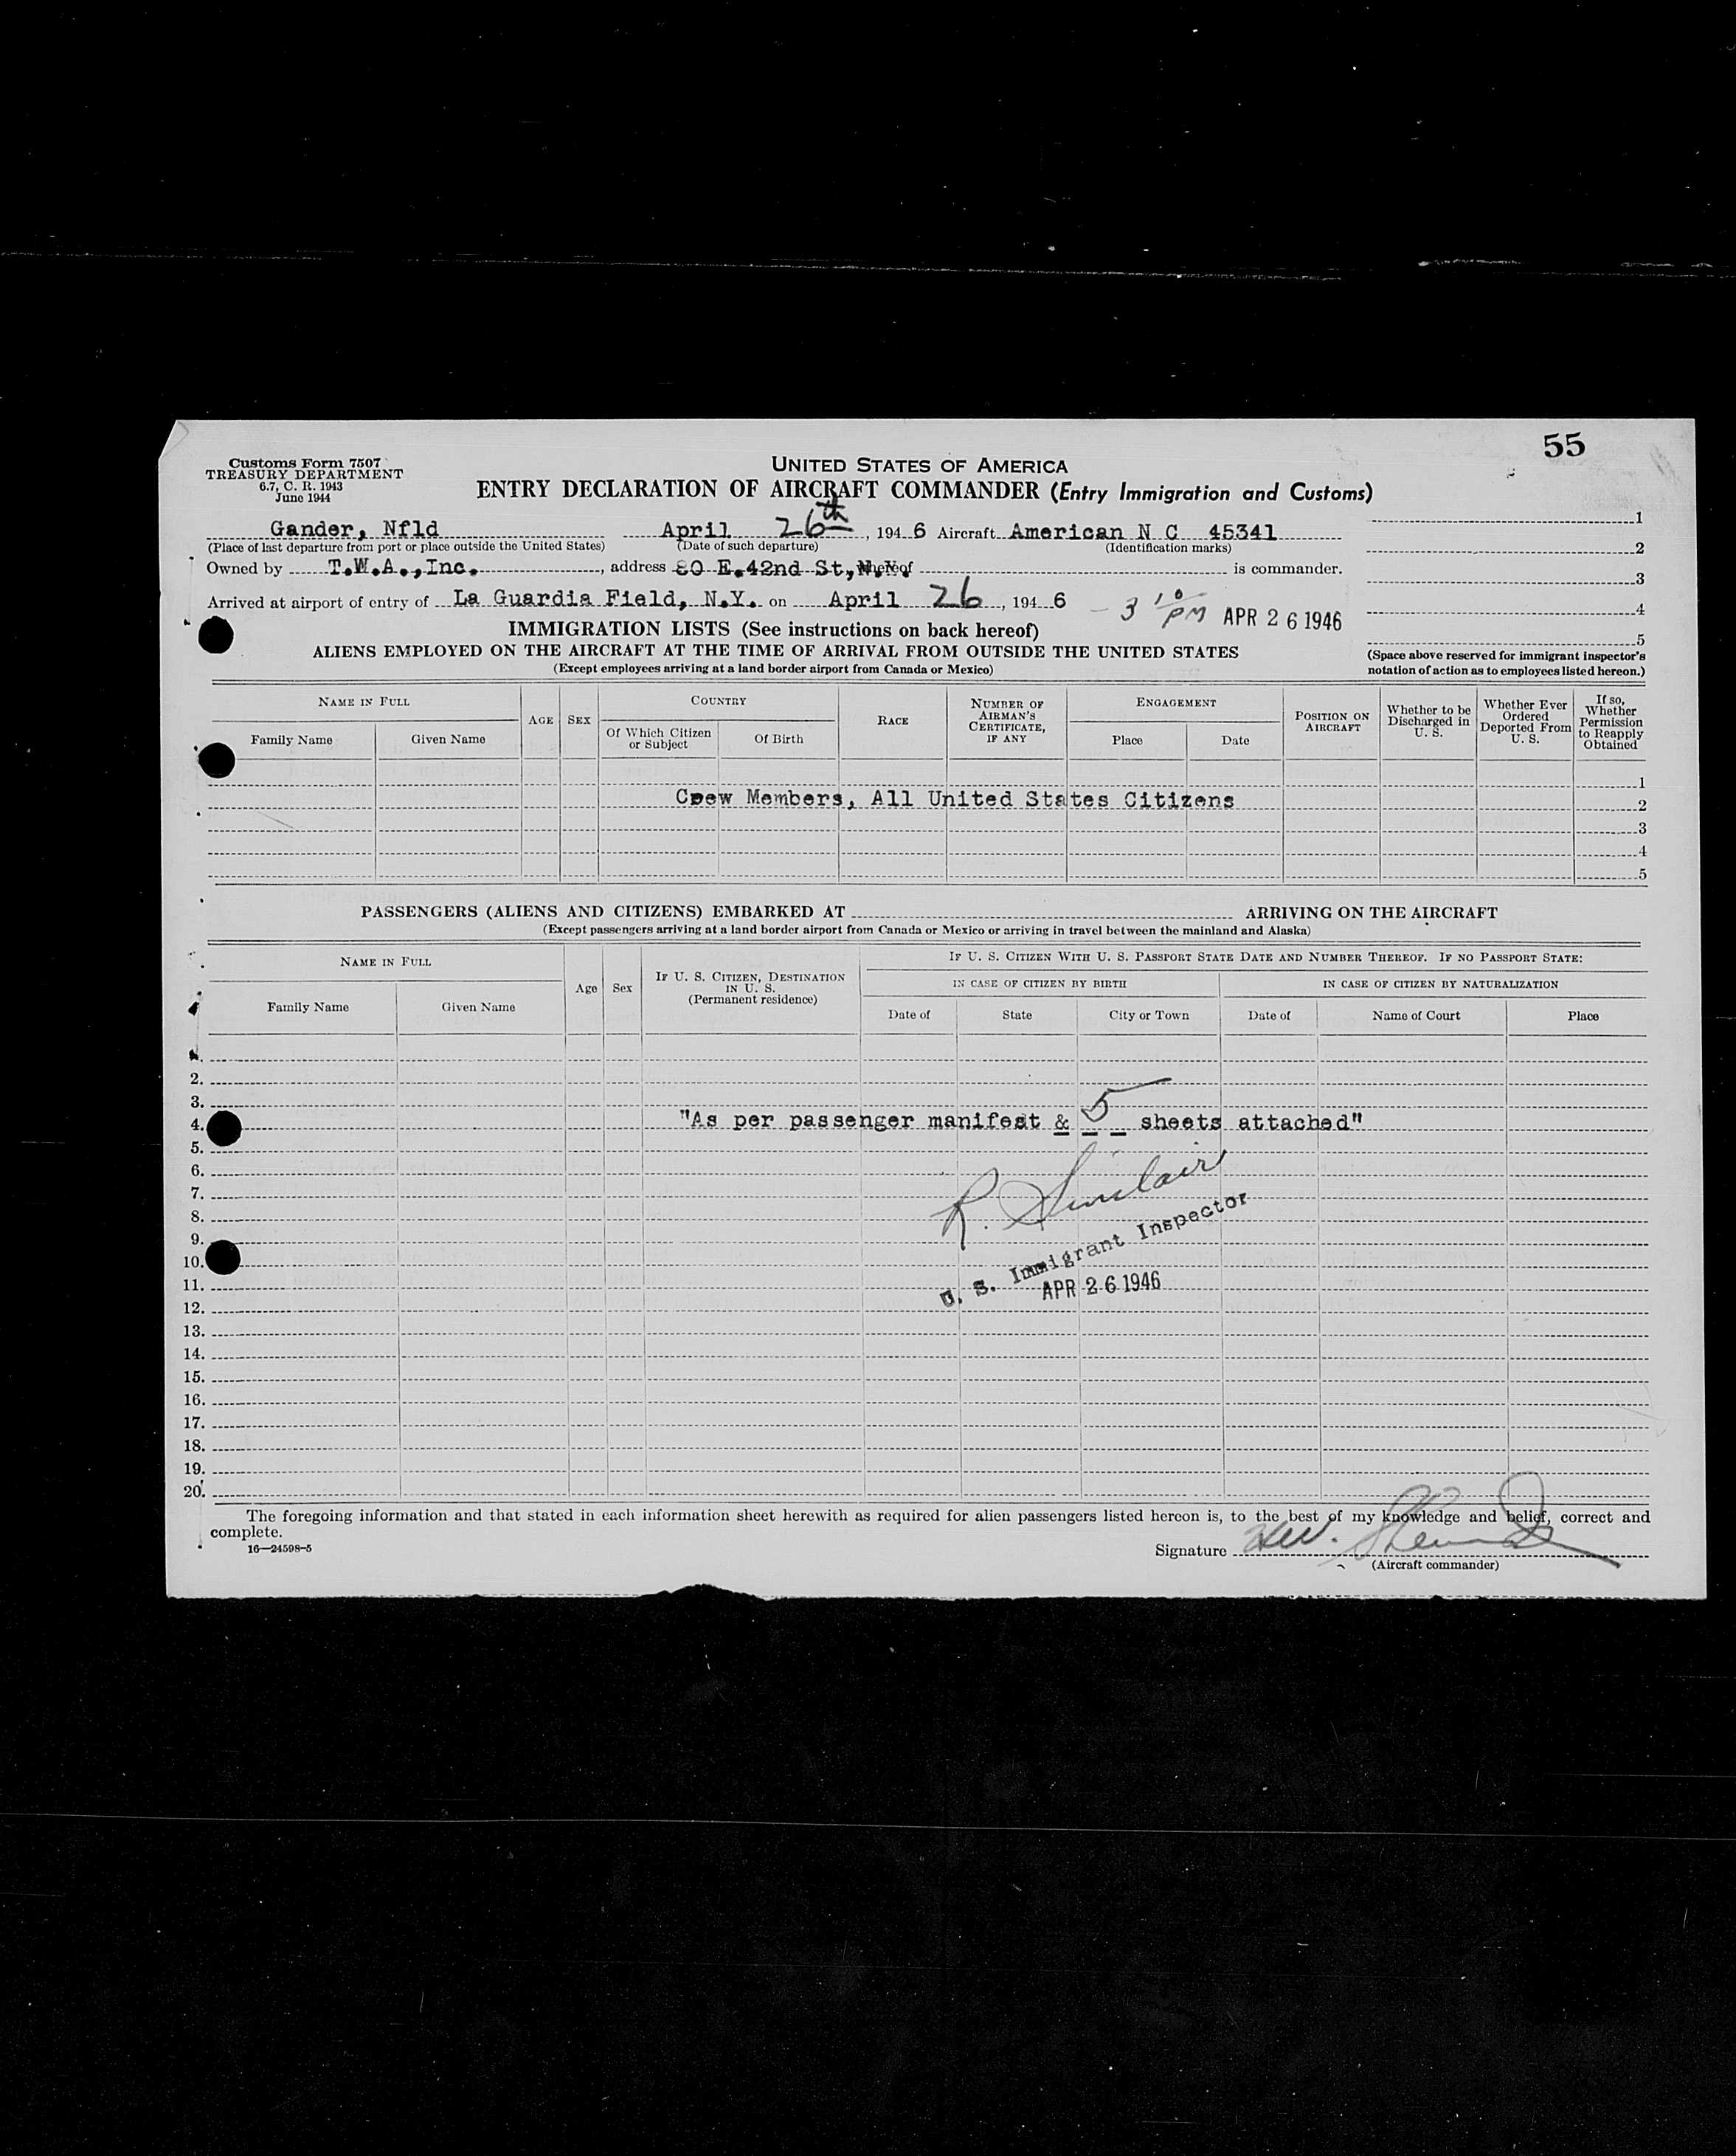 55
Customs Form 7507
TREASURY DEPARTMENT
6.7, C. R. 1943
June 1944
UNITED STATES OF AMERICA
ENTRY DECLARATION OF AIRCRAFT COMMANDER (Entry Immigration and Customs)
Gander, Nfld April 26th, 1946 Aircraft American N C 45341
(Place of last departure from port or place outside the United States) (Date of such departure) (Identification marks)
Owned by T.W.A.,Inc., address 80 E.42nd St,N.Y. whereof is commander.
Arrived at airport of entry of La Guardia Field, N.Y. on April 26, 1946 - 3 10 PM APR 26 1946
1
2
3
4
5
(Space above reserved for immigrant inspector's
notation of action as to employees listed hereon.)
IMMIGRATION LISTS (See instructions on back hereof)
ALIENS EMPLOYED ON THE AIRCRAFT AT THE TIME OF ARRIVAL FROM OUTSIDE THE UNITED STATES
(Except employees arriving at a land border airport from Canada or Mexico)
NAME IN FULL
Family Name
Given Name
AGE
SEX
COUNTRY
Of Which Citizen
or Subject
Of Birth
RACE
NUMBER OF
AIRMAN'S
CERTIFICATE,
IF ANY
ENGAGEMENT
Place
Date
POSITION ON
AIRCRAFT
Whether to be
Discharged in
U. S.
Whether Ever
Ordered
Deported From
U. S.
If so,
Whether
Permission
to Reapply
Obtained
1
Crew Members, All United States Citizens
2
3
4
5
PASSENGERS (ALIENS AND CITIZENS) EMBARKED AT ARRIVING ON THE AIRCRAFT
(Except passengers arriving at a land border airport from Canada or Mexico or arriving in travel between the mainland and Alaska)
NAME IN FULL
Family Name
Given Name
Age
Sex
IF U. S. CITIZEN, DESTINATION
IN U. S.
(Permanent residence)
IF U. S. CITIZEN WITH U. S. PASSPORT STATE DATE AND NUMBER THEREOF. IF NO PASSPORT STATE:
IN CASE OF CITIZEN BY BIRTH
IN CASE OF CITIZEN BY NATURALIZATION
Date of
State
City or Town
Date of
Name of Court
Place
1.
2.
3.
4. "As per passenger manifest & 5 sheets attached"
5.
6.
7. R. Sinclair
8.
9.
10. U. S. Immigrant Inspector
11. APR 26 1946
12.
13.
14.
15.
16.
17.
18.
19.
20.
The foregoing information and that stated in each information sheet herewith as required for alien passengers listed hereon is, to the best of my knowledge and belief, correct and
complete.
16—24598-5
Signature
(Aircraft commander)